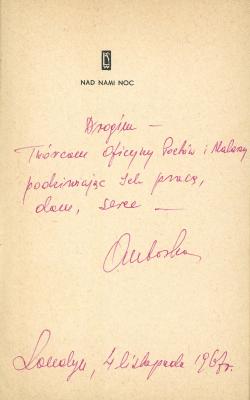 NAD NAMI NOC
Drogim —
Twórcom Oficyny Poetów i Malarzy
podziwiając Ich pracę,
dom, serce —
Londyn, 4 listopada 1967 r.